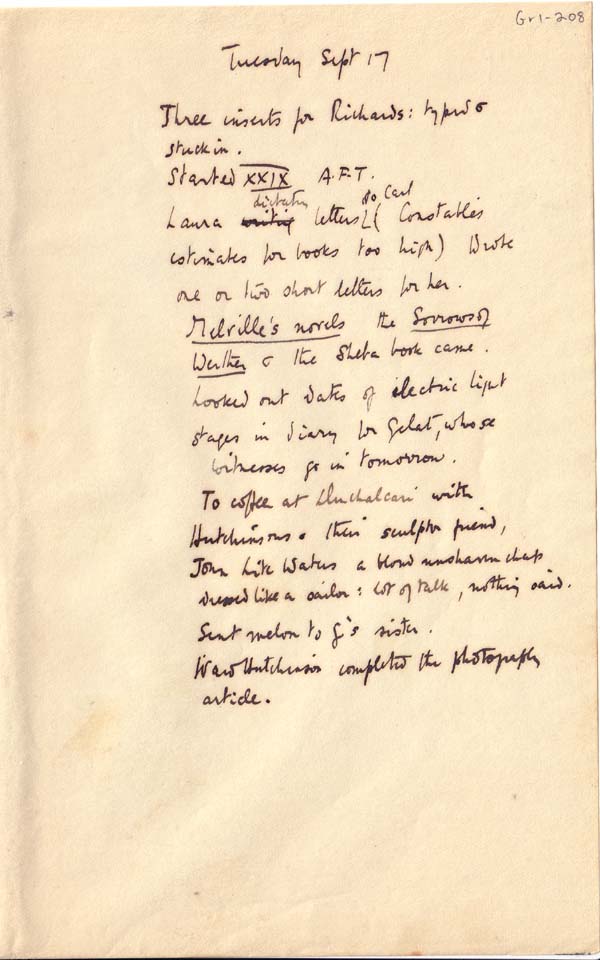 Gr1-208
Tuesday Sept 17
Three inserts for Richards: typed &
stuck in.
Started XXIX A.F.T.
dictating to Carl
Laura writing letters (Constable's
estimates for books too high) Wrote
one or two short letters for her.
Melville's novels the Sorrows of
Werther & the Sheba book came.
Looked out dates of electric light
stages in diary for Gelat, whose
witnesses go in tomorrow.
To coffee at with
Hutchinsons & their sculptor friend,
John Waters a blond unshaven chap
dressed like a sailor: lot of talk, nothing said.
Sent melon to G's sister.
Ward Hutchinson completed the photography
article.